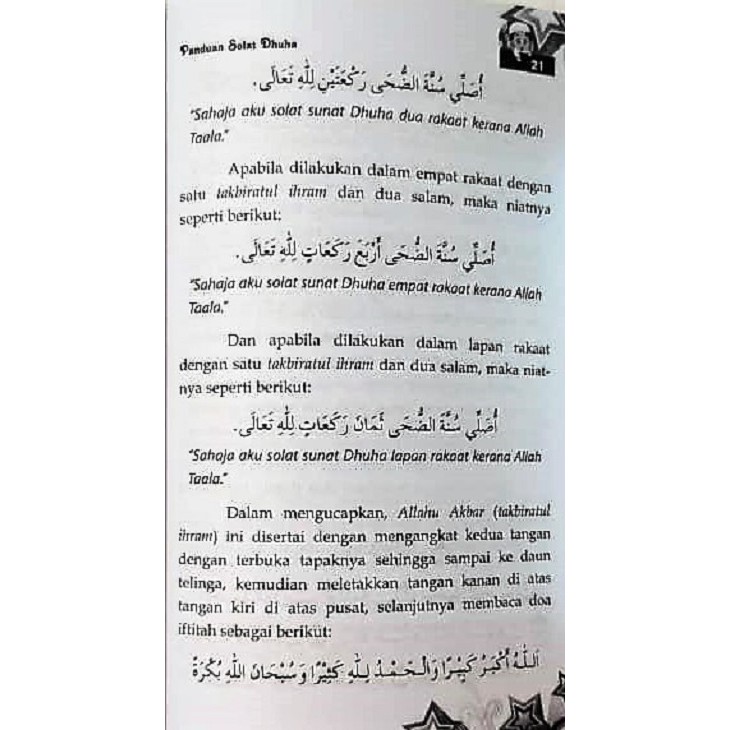 Panduan Solat Dhuha
21
أُصَلِّي سُنَّةَ الضُّحَى رَكْعَتَيْنِ لِلّٰهِ تَعَالَى.
"Sahaja aku solat sunat Dhuha dua rakaat kerana Allah
Taala."
Apabila dilakukan dalam empat rakaat dengan
satu takbiratul ihram dan dua salam, maka niatnya
seperti berikut:
أُصَلِّي سُنَّةَ الضُّحَى أَرْبَعَ رَكَعَاتٍ لِلّٰهِ تَعَالَى.
"Sahaja aku solat sunat Dhuha empat rakaat kerana Allah
Taala."
Dan apabila dilakukan dalam lapan rakaat
dengan satu takbiratul ihram dan dua salam, maka niat-
nya seperti berikut:
أُصَلِّي سُنَّةَ الضُّحَى ثَمَانَ رَكَعَاتٍ لِلّٰهِ تَعَالَى.
"Sahaja aku solat sunat Dhuha lapan rakaat kerana Allah
Taala."
Dalam mengucapkan, Allahu Akbar (takbiratul
ihram) ini disertai dengan mengangkat kedua tangan
dengan terbuka tapaknya sehingga sampai ke daun
telinga, kemudian meletakkan tangan kanan di atas
tangan kiri di atas pusat, selanjutnya membaca doa
iftitah sebagai berikut:
اَللّٰهُ أَكْبَرُ كَبِيْرًا وَالْحَمْدُ لِلّٰهِ كَثِيْرًا وَسُبْحَانَ اللّٰهِ بُكْرَةً